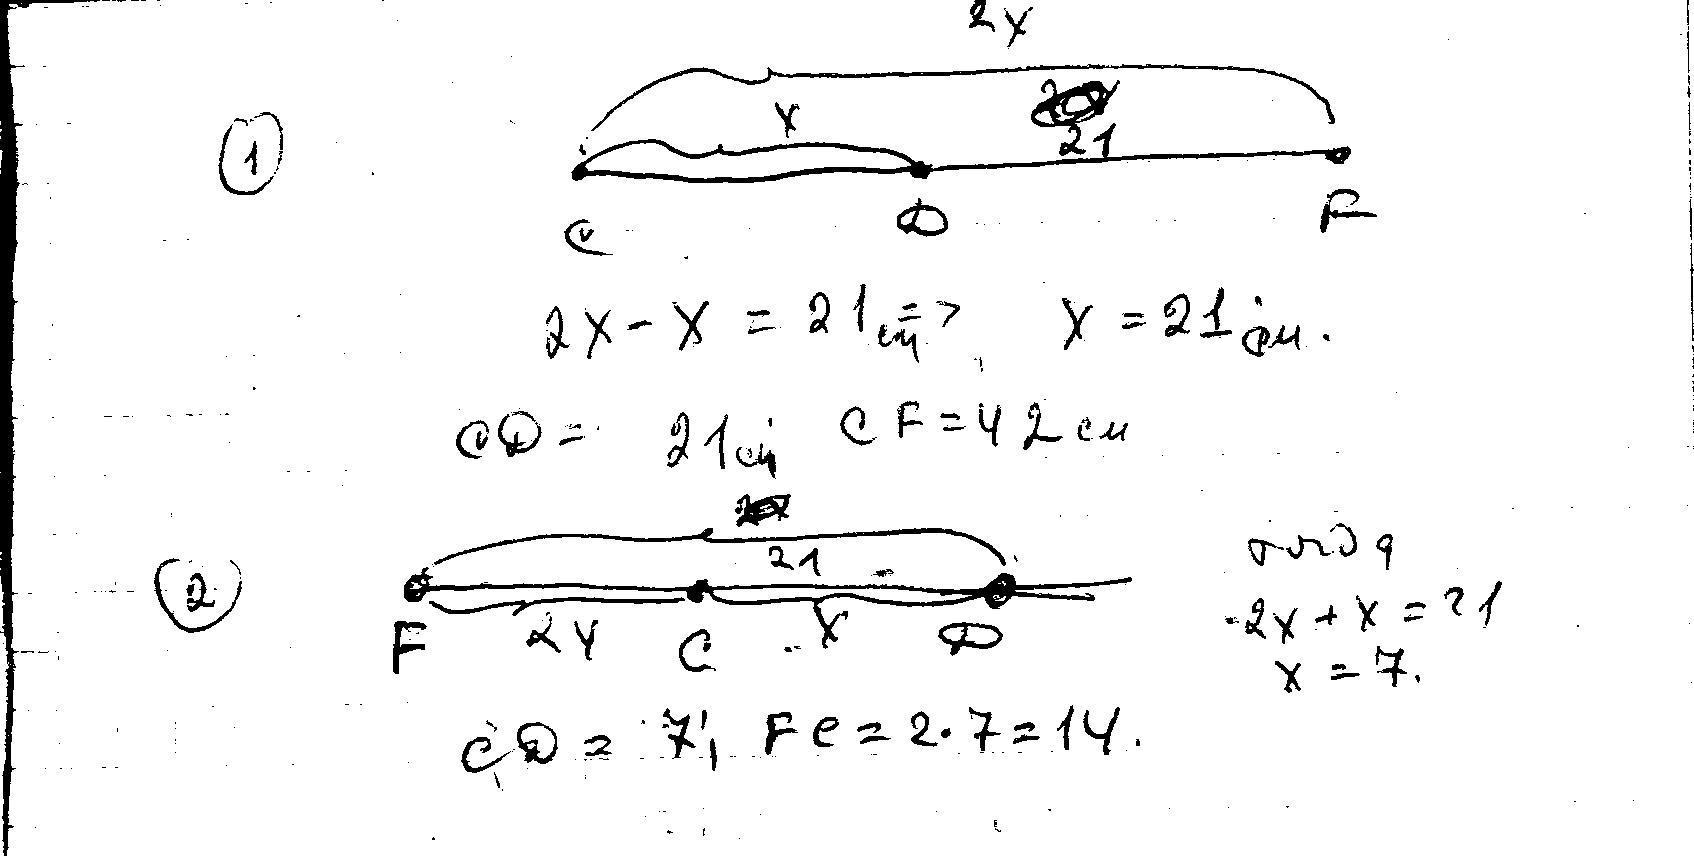 2x
x
21
1
C D F
2x - x = 21 см => x = 21 см.
CD = 21 см CF = 42 см
21
2
F 2x C x D
тогда
2x + x = 21
x = 7.
CD = 7, FC = 2·7 = 14.